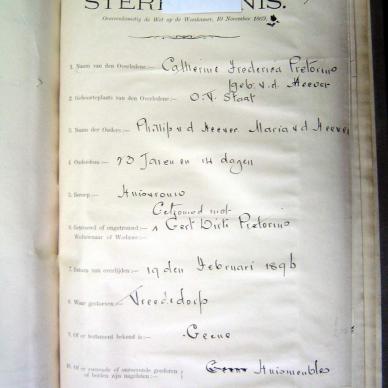 STER NIS.
Overeenkomstig de Wet op de Weeskamer, 10 November 1869.
1. Naam van den Overledene:— Catherine Frederica Pretorius
(geb. v.d. Heever
2. Geboorteplaats van den Overledene:— O.V. Staat
3. Naam der Ouders:— Phillip v d Heever Maria v d Heever
4. Ouderdom:— 23 Jaren en 14 dagen
5. Beroep:— Huisvrouw
Getrouwd met
6. Getrouwd of ongetrouwd:— Gert Pretorius
Weduwnaar of Weduwe:—
7. Datum van overlijden:— 19 den Februari 1896
8. Waar gestorven:— Vrededorp
9. Of er testament bekend is:— Geene
10. Of er roerende of onroerende goederen
of beiden zijn nagelaten:— Huismeubles